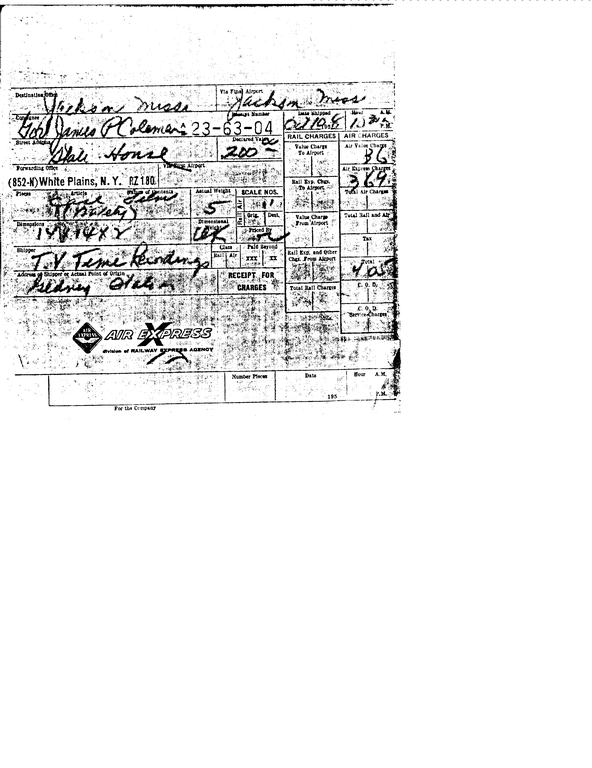 Destination Office Via Final Airport
Jackson Miss Jackson Miss
Consignee Receipt Number Date Shipped Hour A.M. P.M.
James P Coleman 23-63-04 Oct
RAIL CHARGES AIR CHARGES
Street Address Declared Value Value Charge To Airport Air Value Charge
State House 200 36
Forwarding Office Via First Airport Air Express Charges
(852-N) White Plains, N. Y. RZ 180 Rail Exp. Chgs. To Airport 369
Pieces Article Nature of Contents Actual Weight SCALE NOS. Total Air Charges
Film 5
Rail Air Orig. Dest. Value Charge From Airport Total Rail and Air
Dimensions Dimensional Priced By
14 X 14 X 2 Tax
Shipper Class Paid Beyond Rail Exp. and Other Chgs. From Airport
T.V Time Rail Air XXX XX Total
405
Address of Shipper or Actual Point of Origin RECEIPT FOR CHARGES Total Rail Charges C. O. D.
C. O. D. Service Charges
AIR EXPRESS AIR EXPRESS
division of RAILWAY EXPRESS AGENCY
Number Pieces Date Hour A.M.
195 P.M.
For the Company